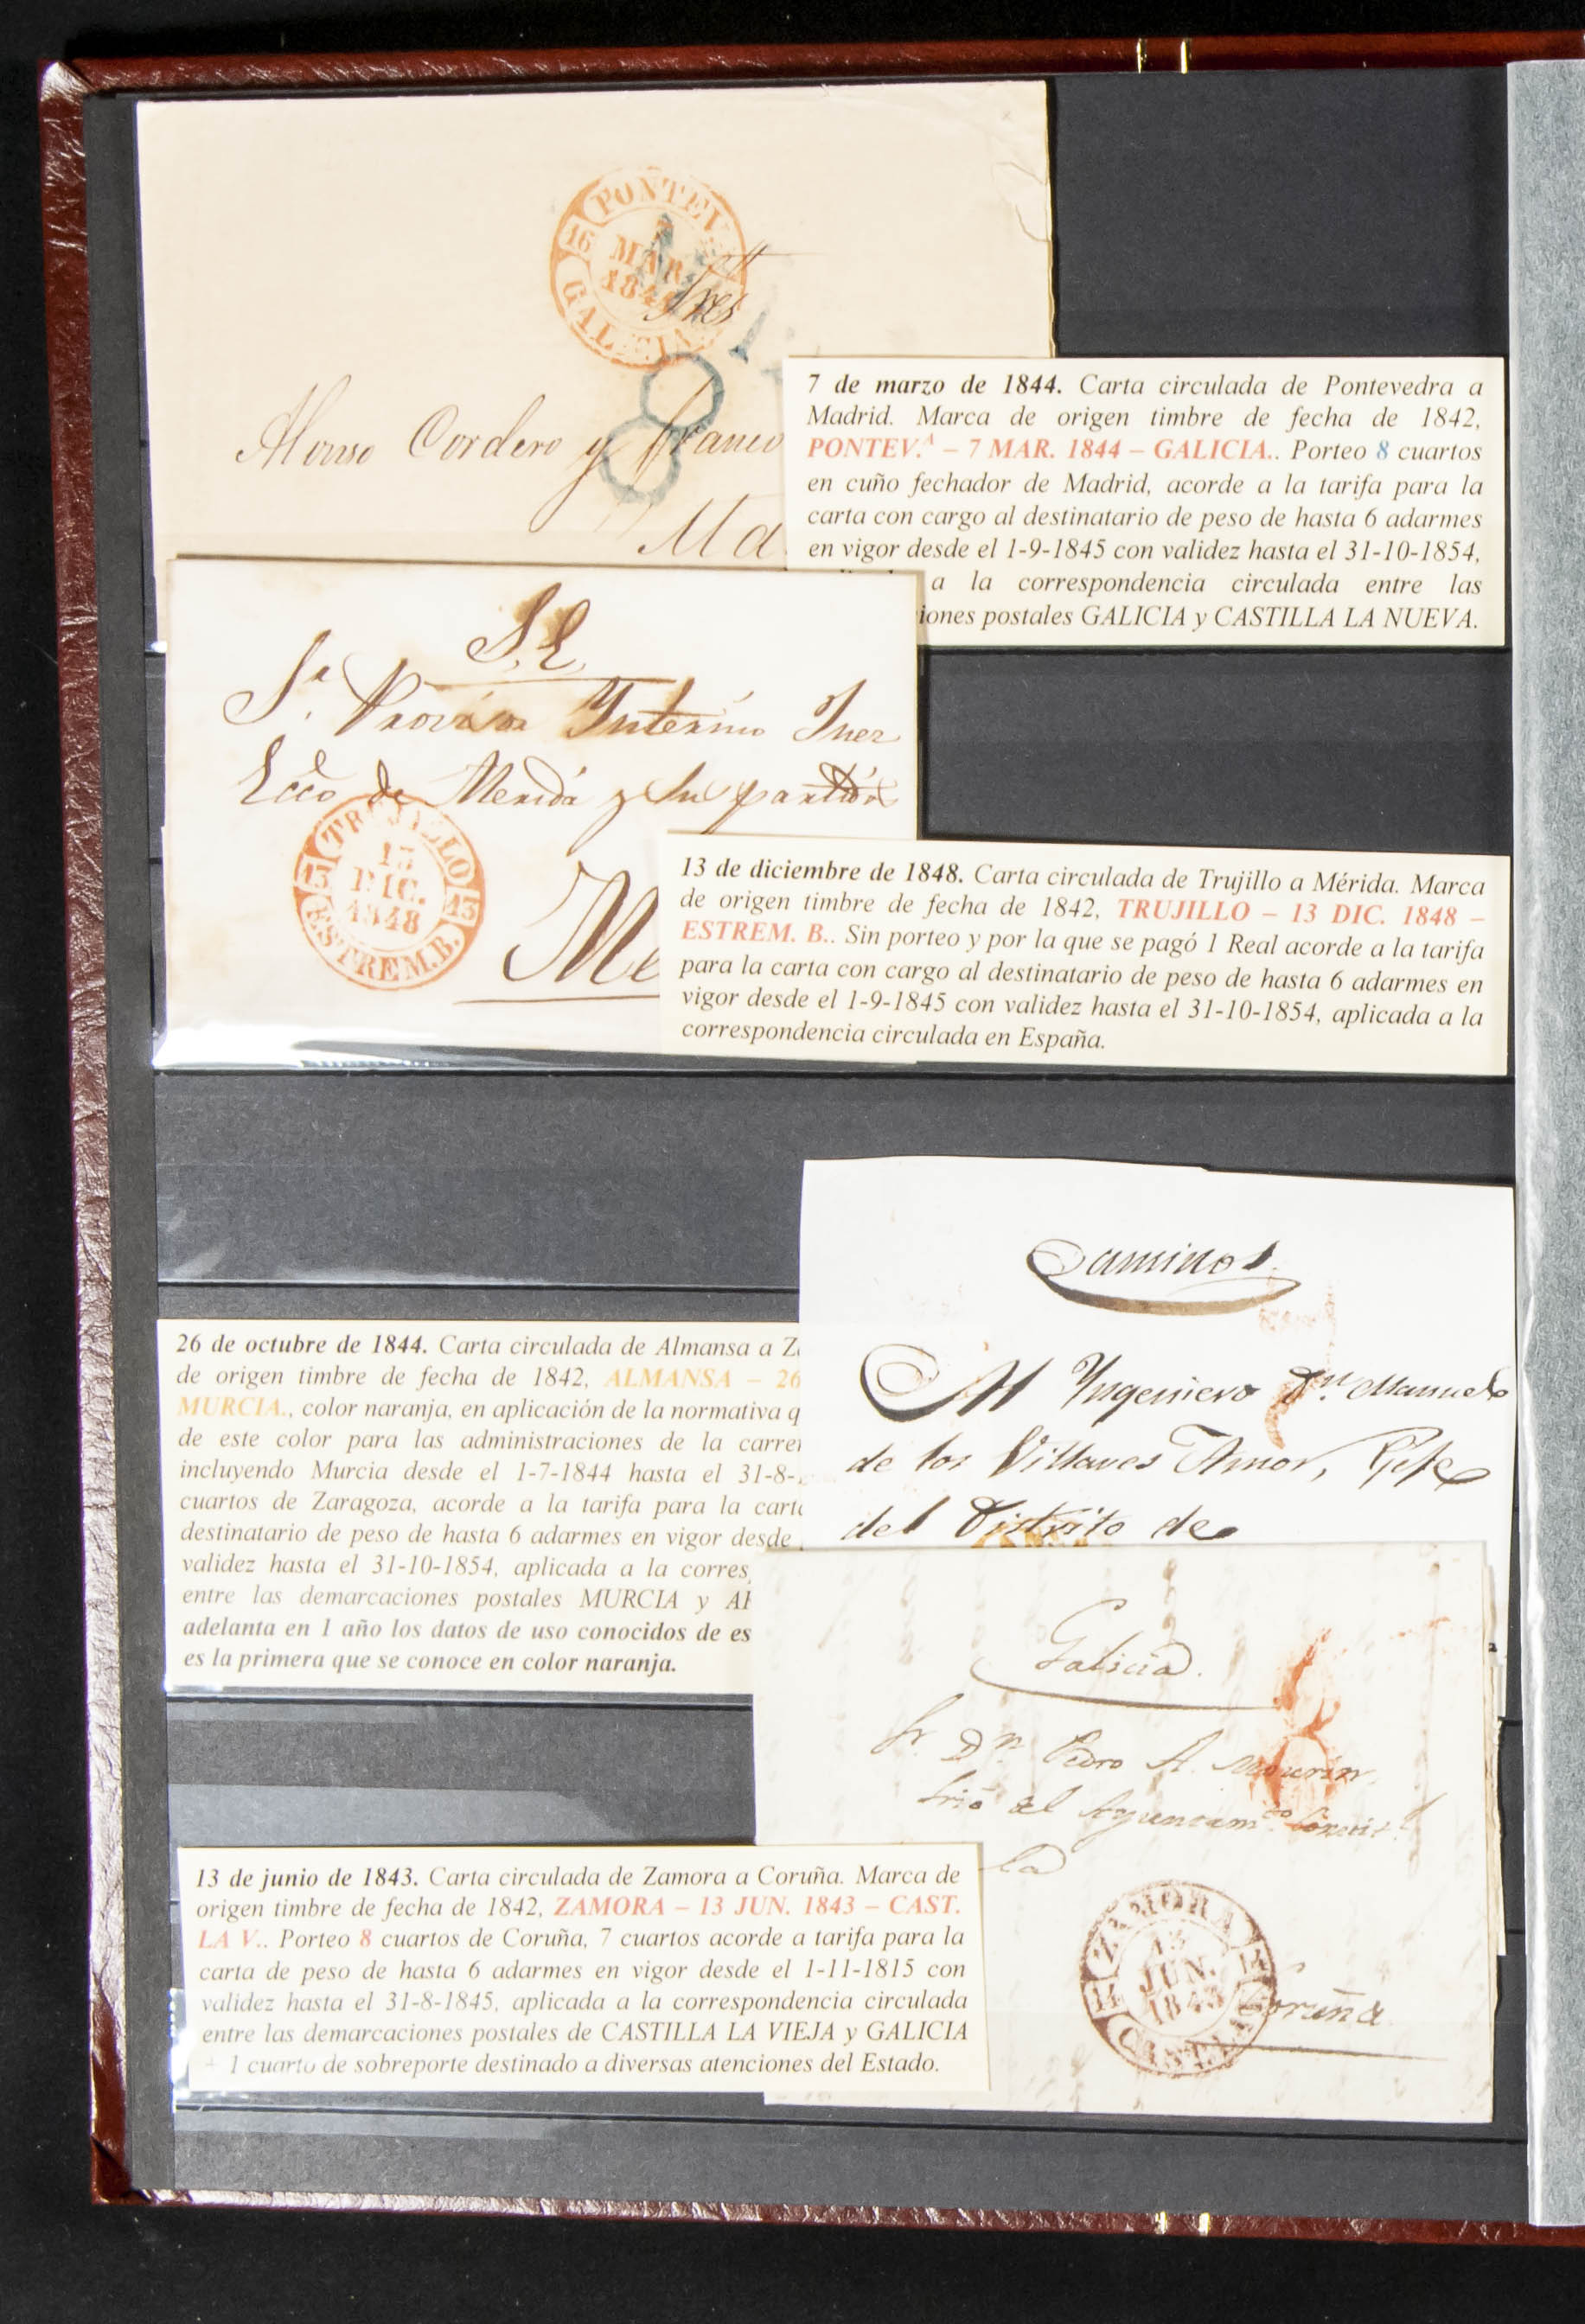 PONTEV
16
MAR.
GALICIA
8
Alonso Cordero y Franco
7 de marzo de 1844. Carta circulada de Pontevedra a
Madrid. Marca de origen timbre de fecha de 1842,
PONTEV.ᴬ – 7 MAR. 1844 – GALICIA.. Porteo 8 cuartos
en cuño fechador de Madrid, acorde a la tarifa para la
carta con cargo al destinatario de peso de hasta 6 adarmes
en vigor desde el 1-9-1845 con validez hasta el 31-10-1854,
a la correspondencia circulada entre las
iones postales GALICIA y CASTILLA LA NUEVA.
Interino Juez
de Merida y su partido
TRUJILLO
13
DIC.
1848
15 15
ESTREM.B.
Me
13 de diciembre de 1848. Carta circulada de Trujillo a Mérida. Marca
de origen timbre de fecha de 1842, TRUJILLO – 13 DIC. 1848 –
ESTREM. B.. Sin porteo y por la que se pagó 1 Real acorde a la tarifa
para la carta con cargo al destinatario de peso de hasta 6 adarmes en
vigor desde el 1-9-1845 con validez hasta el 31-10-1854, aplicada a la
correspondencia circulada en España.
Caminos.
Al Ingeniero Dn. Manuel
de los Villares Amor, Gefe
del Distrito de
26 de octubre de 1844. Carta circulada de Almansa a Z
de origen timbre de fecha de 1842, ALMANSA – 26
MURCIA., color naranja, en aplicación de la normativa q
de este color para las administraciones de la carre
incluyendo Murcia desde el 1-7-1844 hasta el 31-8-
cuartos de Zaragoza, acorde a la tarifa para la cart
destinatario de peso de hasta 6 adarmes en vigor desde
validez hasta el 31-10-1854, aplicada a la corres
entre las demarcaciones postales MURCIA y
adelanta en 1 año los datos de uso conocidos de es
es la primera que se conoce en color naranja.
Galicia.
Sr. Dn. Pedro A.
del Ayuntamto.
la
ZAMORA
13
JUN.
1843
Coruña
13 de junio de 1843. Carta circulada de Zamora a Coruña. Marca de
origen timbre de fecha de 1842, ZAMORA – 13 JUN. 1843 – CAST.
LA V.. Porteo 8 cuartos de Coruña, 7 cuartos acorde a tarifa para la
carta de peso de hasta 6 adarmes en vigor desde el 1-11-1815 con
validez hasta el 31-8-1845, aplicada a la correspondencia circulada
entre las demarcaciones postales de CASTILLA LA VIEJA y GALICIA
+ 1 cuarto de sobreporte destinado a diversas atenciones del Estado.